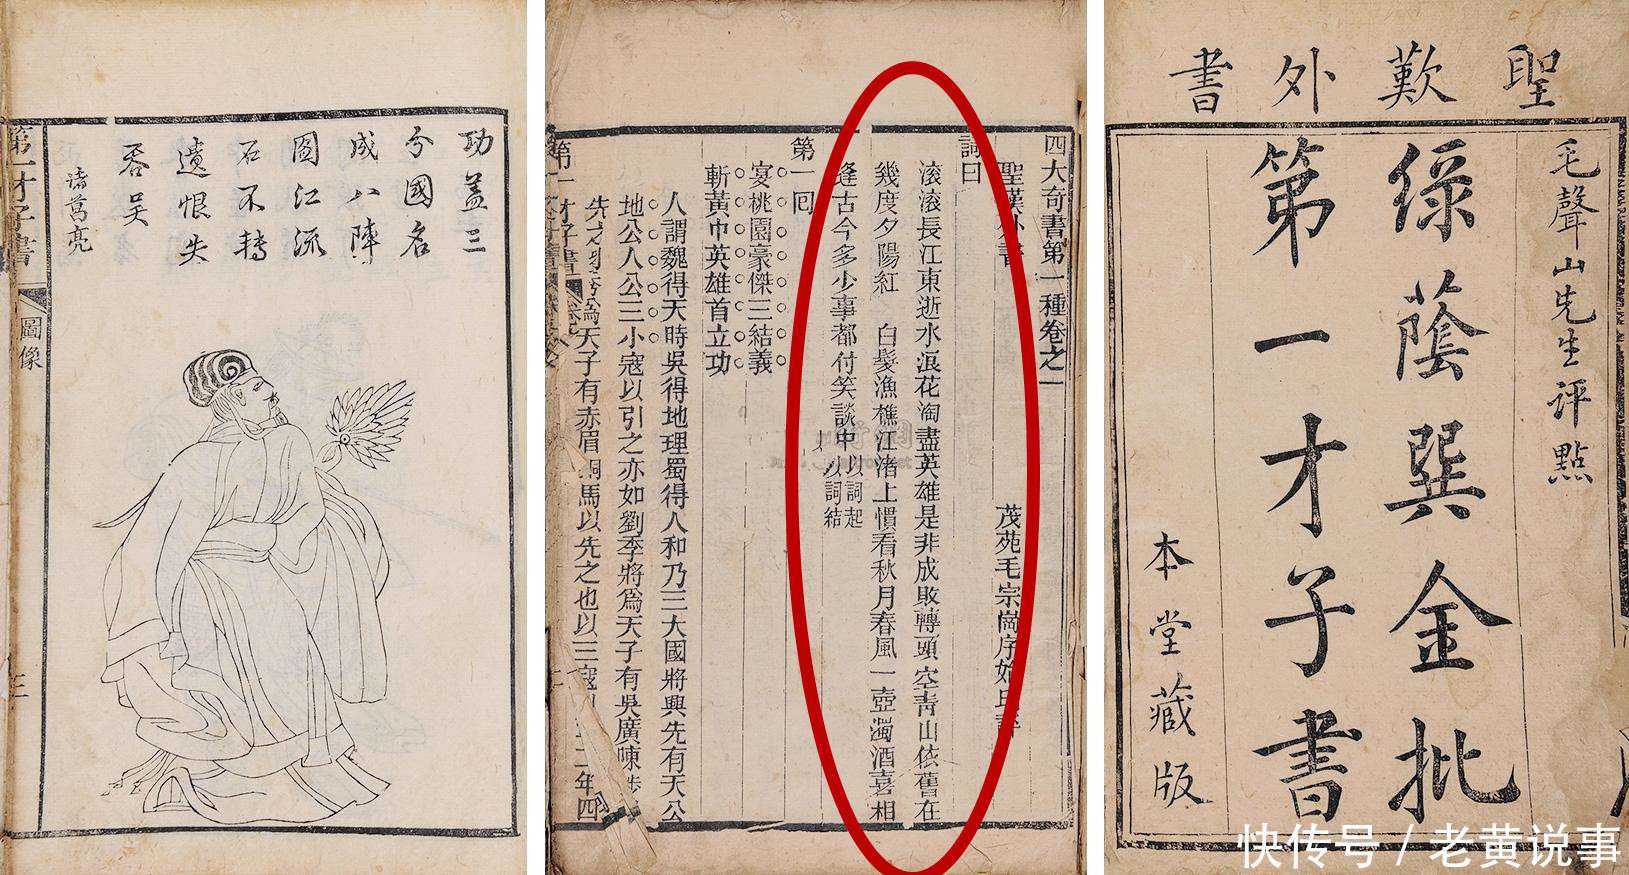 功蓋三
分國名
成八陣
圖江流
石不轉
遺恨失
吞吴
諸葛亮
第一才子書
圖像
三
四大奇書第一種卷之一
聖歎外書 茂苑毛宗崗序始氏評
詞曰
滚滚長江東逝水浪花淘盡英雄是非成敗轉頭空青山依舊在
幾度夕陽紅 白髮漁樵江渚上慣看秋月春風一壺濁酒喜相
逢古今多少事都付笑談中 以詞起 以詞結
第一回
宴桃園豪傑三結義
斬黃巾英雄首立功
人謂魏得天時吳得地理蜀得人和乃三大國將興先有天公
地公人公三小寇以引之亦如劉季將爲天子有吳廣陳涉
先之 爲天子有赤眉銅馬以先之也以三寇 年四
第一才子書
聖歎外書
毛聲山先生评點
绿蔭巽金批
第一才子書
本堂藏版
快传号 / 老黄说事